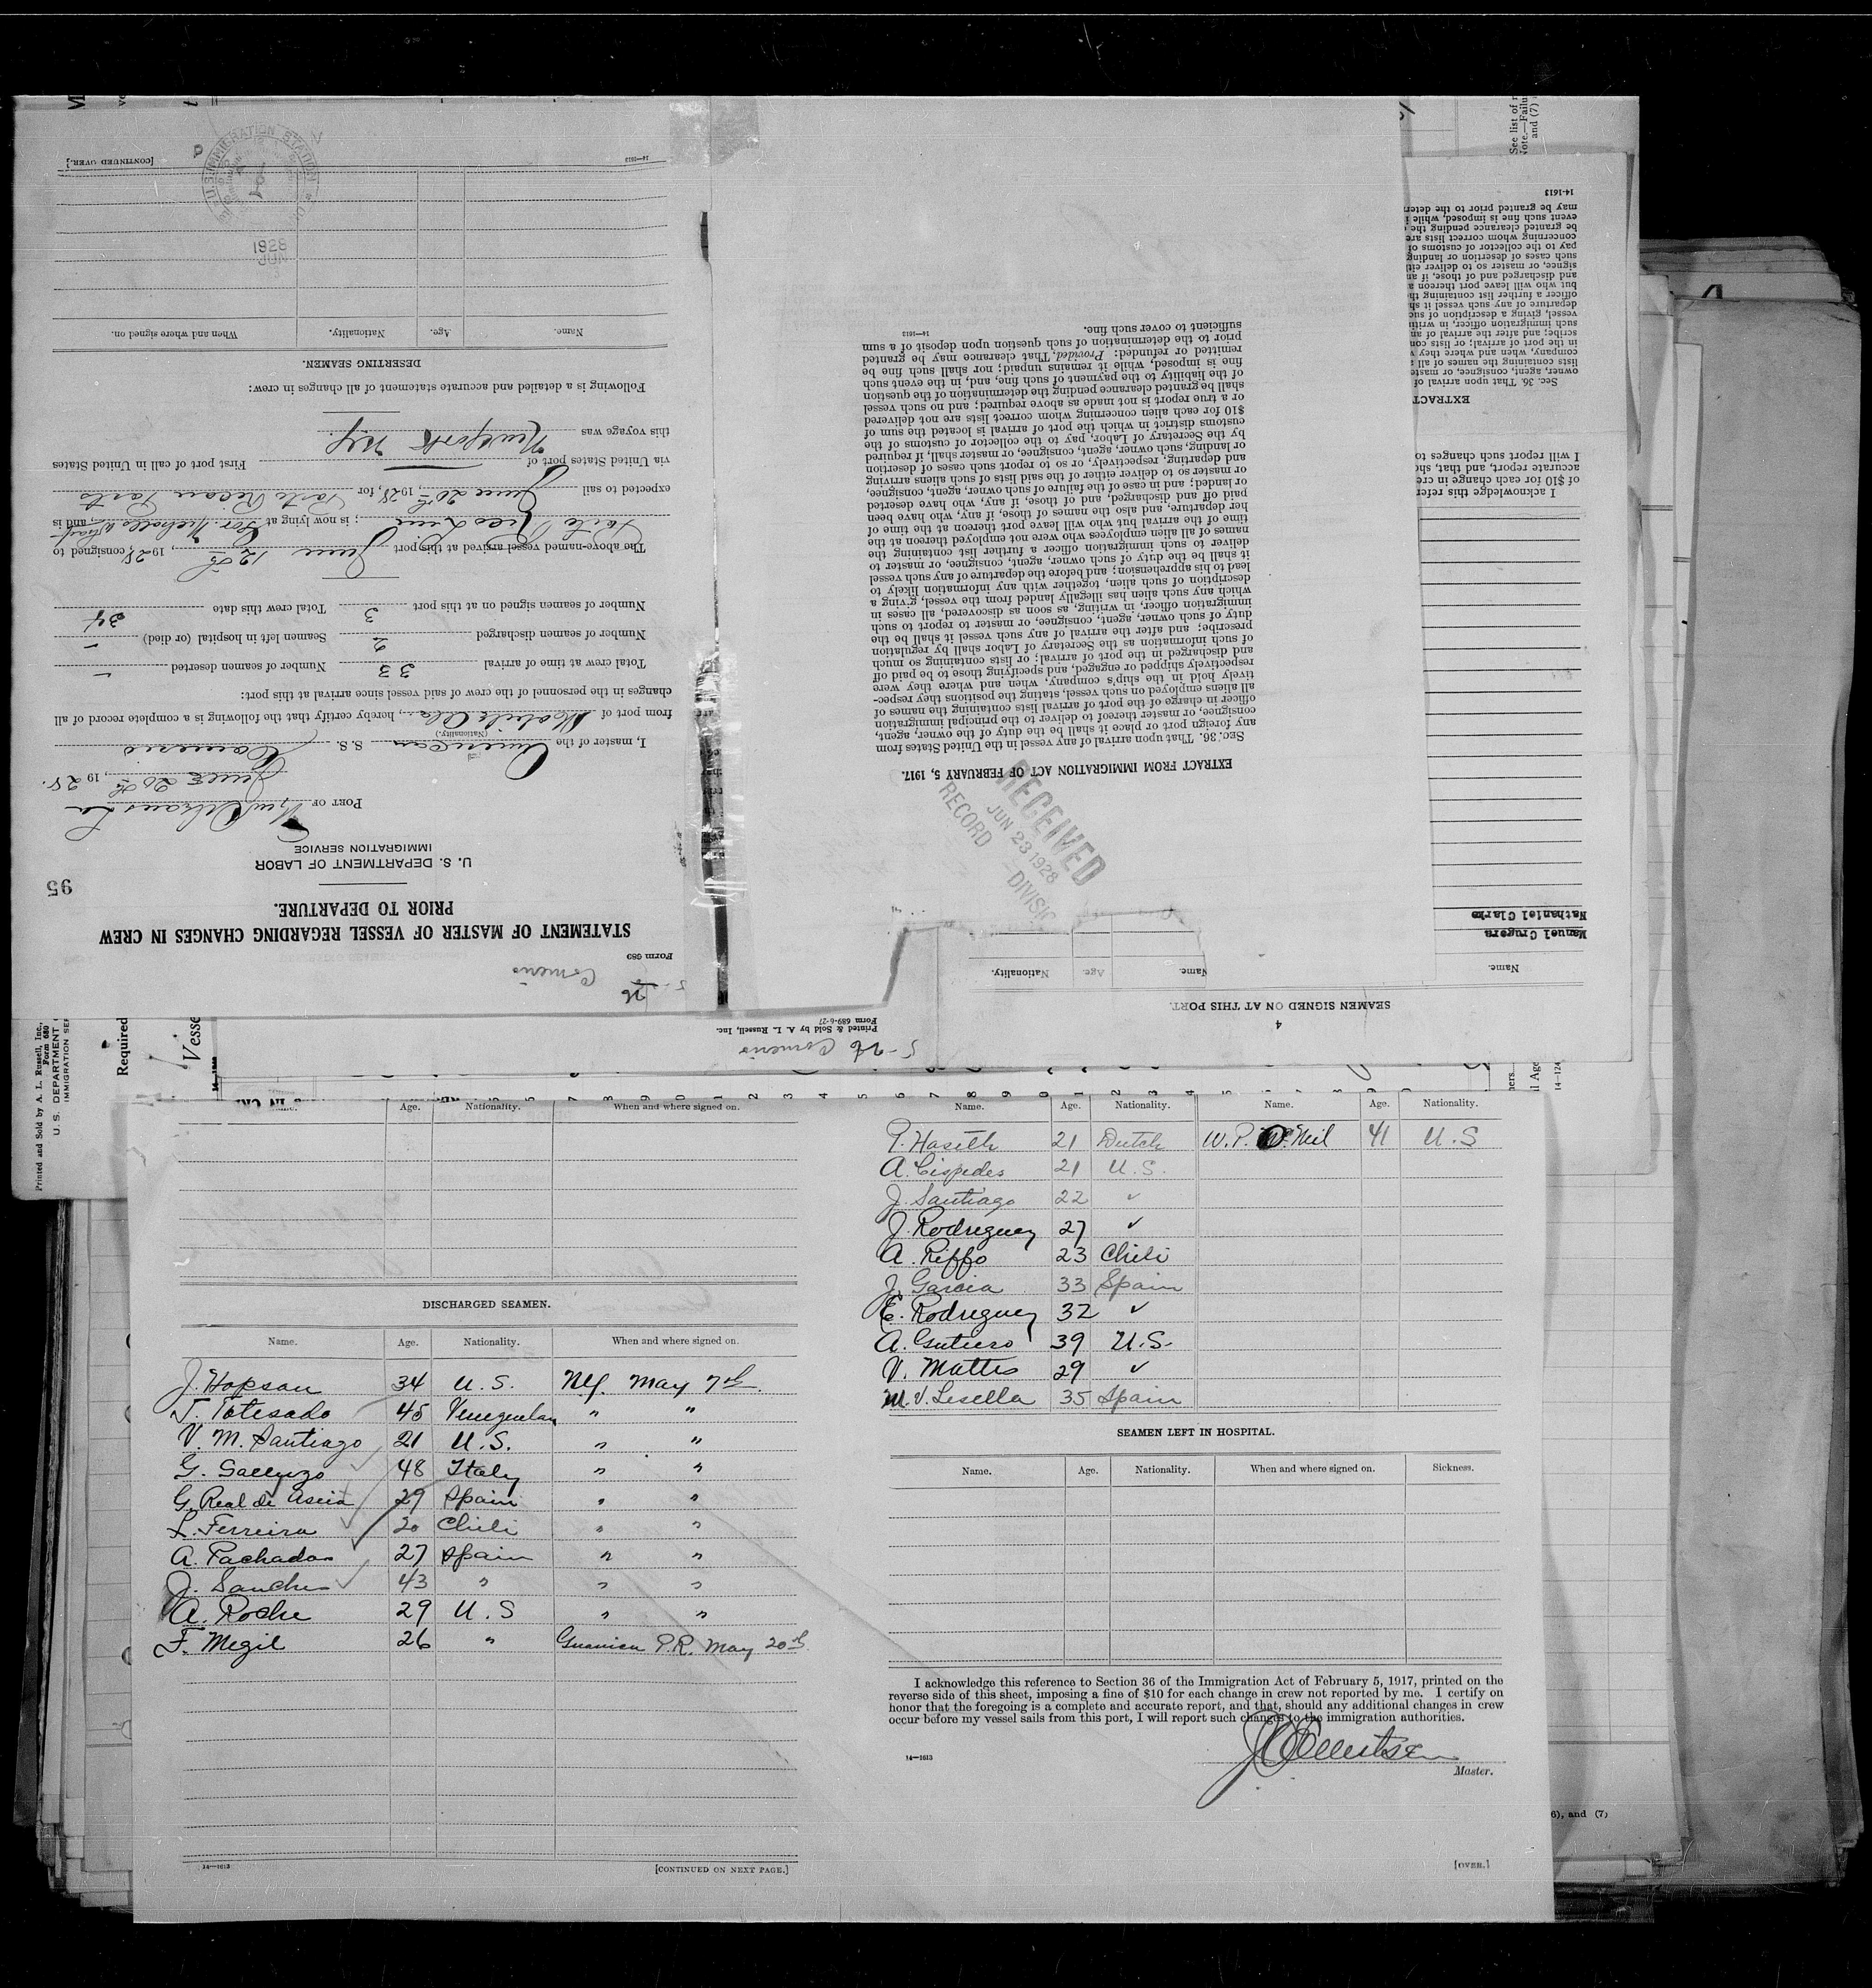 Form 689
STATEMENT OF MASTER OF VESSEL REGARDING CHANGES IN CREW
PRIOR TO DEPARTURE.
95
U. S. DEPARTMENT OF LABOR
IMMIGRATION SERVICE
PORT OF New Orleans La
June 20th, 1928.
I, master of the American S. S. Comerio
(Nationality)
from port of Mobile Ala, hereby certify that the following is a complete record of all
changes in the personnel of the crew of said vessel since arrival at this port:
Total crew at time of arrival 33 Number of seamen deserted -
Number of seamen discharged 2 Seamen left in hospital (or died) -
Number of seamen signed on at this port 3 Total crew this date 34
The above-named vessel arrived at this port June 12th, 1928, consigned to
Porto Rico Line; is now lying at and is
expected to sail June 20th, 1928, for Porto Rican Ports
via United States port of First port of call in United States
this voyage was
Following is a detailed and accurate statement of all changes in crew:
DESERTING SEAMEN.
Name. Age. Nationality. When and where signed on.
1928
14—1613 [CONTINUED OVER.]
U.S. IMMIGRATION STATION
RECEIVED
JUN 23 1928
RECORD DIVISIO
EXTRACT FROM IMMIGRATION ACT OF FEBRUARY 5, 1917.
SEC. 36. That upon arrival of any vessel in the United States from
any foreign port or place it shall be the duty of the owner, agent,
consignee, or master thereof to deliver to the principal immigration
officer in charge of the port of arrival lists containing the names of
all aliens employed on such vessel, stating the positions they respec-
tively hold in the ship's company, when and where they were
respectively shipped or engaged, and specifying those to be paid off
and discharged in the port of arrival; or lists containing so much
of such information as the Secretary of Labor shall by regulation
prescribe; and after the arrival of any such vessel it shall be the
duty of such owner, agent, consignee, or master to report to such
immigration officer, in writing, as soon as discovered, all cases in
which any such alien has illegally landed from the vessel, giving a
description of such alien, together with any information likely to
lead to his apprehension; and before the departure of any such vessel
it shall be the duty of such owner, agent, consignee, or master to
deliver to such immigration officer a further list containing the
names of all alien employees who were not employed thereon at the
time of the arrival but who will leave port thereon at the time of
her departure, and also the names of those, if any, who have been
paid off and discharged, and of those, if any, who have deserted
or landed; and in case of the failure of such owner, agent, consignee,
or master so to deliver either of the said lists of such aliens arriving
and departing, respectively, or so to report such cases of desertion
or landing, such owner, agent, consignee, or master shall, if required
by the Secretary of Labor, pay to the collector of customs of the
customs district in which the port of arrival is located the sum of
$10 for each alien concerning whom correct lists are not delivered
or a true report is not made as above required; and no such vessel
shall be granted clearance pending the determination of the question
of the liability to the payment of such fine, and, in the event such
fine is imposed, while it remains unpaid; nor shall such fine be
remitted or refunded: Provided, That clearance may be granted
prior to the determination of such question upon deposit of a sum
sufficient to cover such fine.
14—1613
Printed & Sold by A. L. Russell, Inc.
Form 689-6-27
5-26 Comerio
4
SEAMEN SIGNED ON AT THIS PORT.
Name. Age. Nationality. Name.
Manuel Crugera
Nathaniel Clarke
I acknowledge this refer
of $10 for each change in cre
accurate report, and that, sho
I will report such changes to
EXTRACT
SEC. 36. That upon arrival of
owner, agent, consignee, or maste
lists containing the names of all
company, when and where they
in the port of arrival; or lists con
scribe; and after the arrival of an
such immigration officer, in writi
vessel, giving a description of suc
departure of any such vessel it sh
officer a further list containing th
but who will leave port thereon a
and discharged and of those, if an
signee, or master so to deliver eit
such cases of desertion or landing
pay to the collector of customs of
concerning whom correct lists are
be granted clearance pending the
event such fine is imposed, while i
may be granted prior to the deter
14-1613
Printed and Sold by A. L. Russell, Inc.,
Form 680
U. S. DEPARTMENT
IMMIGRATION SER
Required
Vesse
Age. Nationality. When and where signed on.
DISCHARGED SEAMEN.
Name. Age. Nationality. When and where signed on.
J. Hopson 34 U.S. NY. May 7th.
T. Totesado 45 Venezuelan " "
V. M. Santiago 21 U.S. " "
G. 48 Italy " "
G. Real de 29 Spain " "
L. Ferreira 20 Chili " "
A. Pachados 27 Spain " "
J. Sanches 43 " " "
A. Roche 29 U.S " "
F. Megil 26 " Guanica P.R. May 20th.
14—1613 [CONTINUED ON NEXT PAGE.]
Name. Age. Nationality. Name. Age. Nationality.
P. Haseth 21 Dutch W. P. McNeil 41 U.S
A. Cispedes 21 U.S.
J. Santiago 22 ✓
J. Rodriguez 27 ✓
A. Riffo 23 Chili
J. Garcia 33 Spain
E. Rodriguez 32 ✓
A. Gutiero 39 U.S.
V. Mattis 29 ✓
M. V. Lesella 35 Spain
SEAMEN LEFT IN HOSPITAL.
Name. Age. Nationality. When and where signed on. Sickness.
I acknowledge this reference to Section 36 of the Immigration Act of February 5, 1917, printed on the
reverse side of this sheet, imposing a fine of $10 for each change in crew not reported by me. I certify on
honor that the foregoing is a complete and accurate report, and that, should any additional changes in crew
occur before my vessel sails from this port, I will report such changes to the immigration authorities.
14—1613
Master.
[OVER.]
6), and (7)